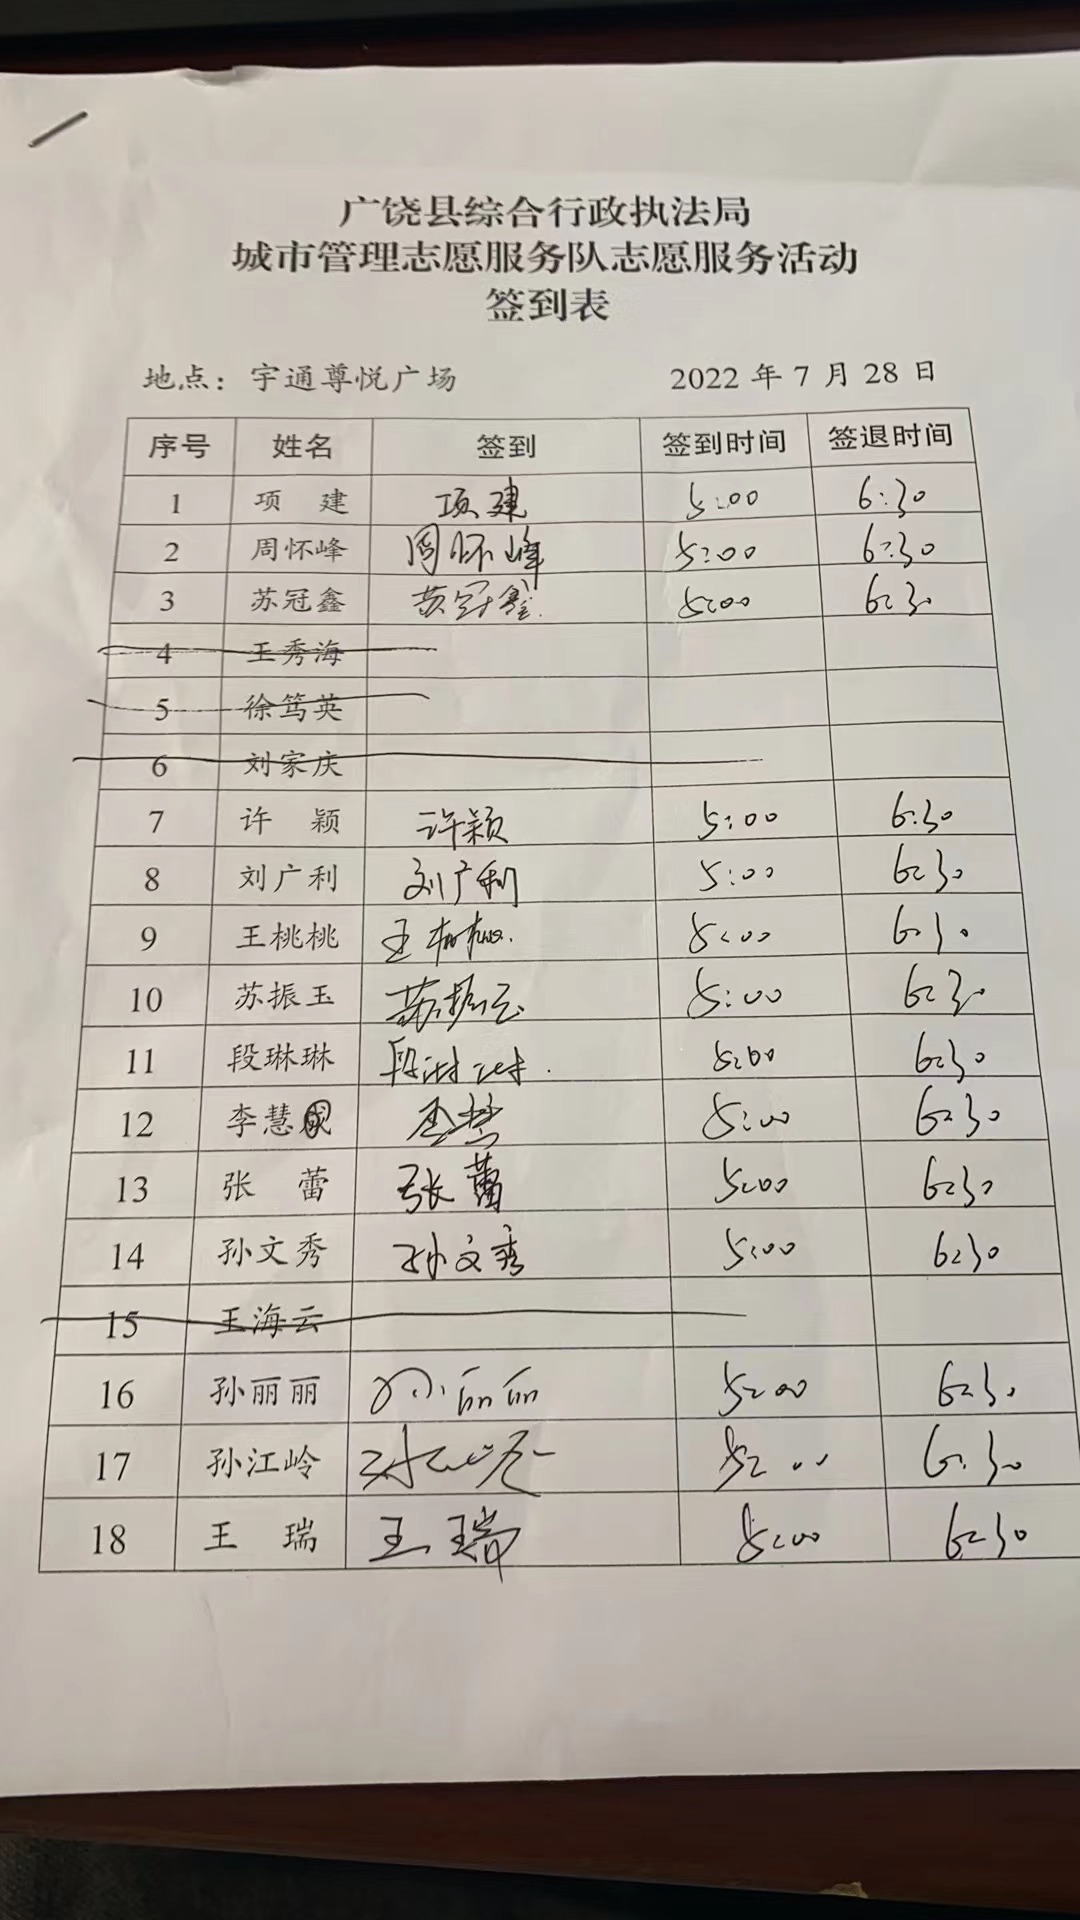 广饶县综合行政执法局
城市管理志愿服务队志愿服务活动
签到表
地点：宇通尊悦广场 2022 年 7 月 28 日
序号 姓名 签到 签到时间 签退时间
1 项 建 项建 5:00 6:30
2 周怀峰 周怀峰 5:00 6:30
3 苏冠鑫 苏冠鑫 5:00 6:30
4 王秀海
5 徐笃英
6 刘家庆
7 许 颖 许颖 5:00 6:30
8 刘广利 刘广利 5:00 6:30
9 王桃桃 王桃桃 5:00 6:30
10 苏振玉 苏振玉 5:00 6:30
11 段琳琳 段琳琳 5:00 6:30
12 李慧 5:00 6:30
13 张 蕾 张蕾 5:00 6:30
14 孙文秀 孙文秀 5:00 6:30
15 王海云
16 孙丽丽 孙丽丽 5:00 6:30
17 孙江岭 孙江岭 5:00 6:30
18 王 瑞 王瑞 5:00 6:30